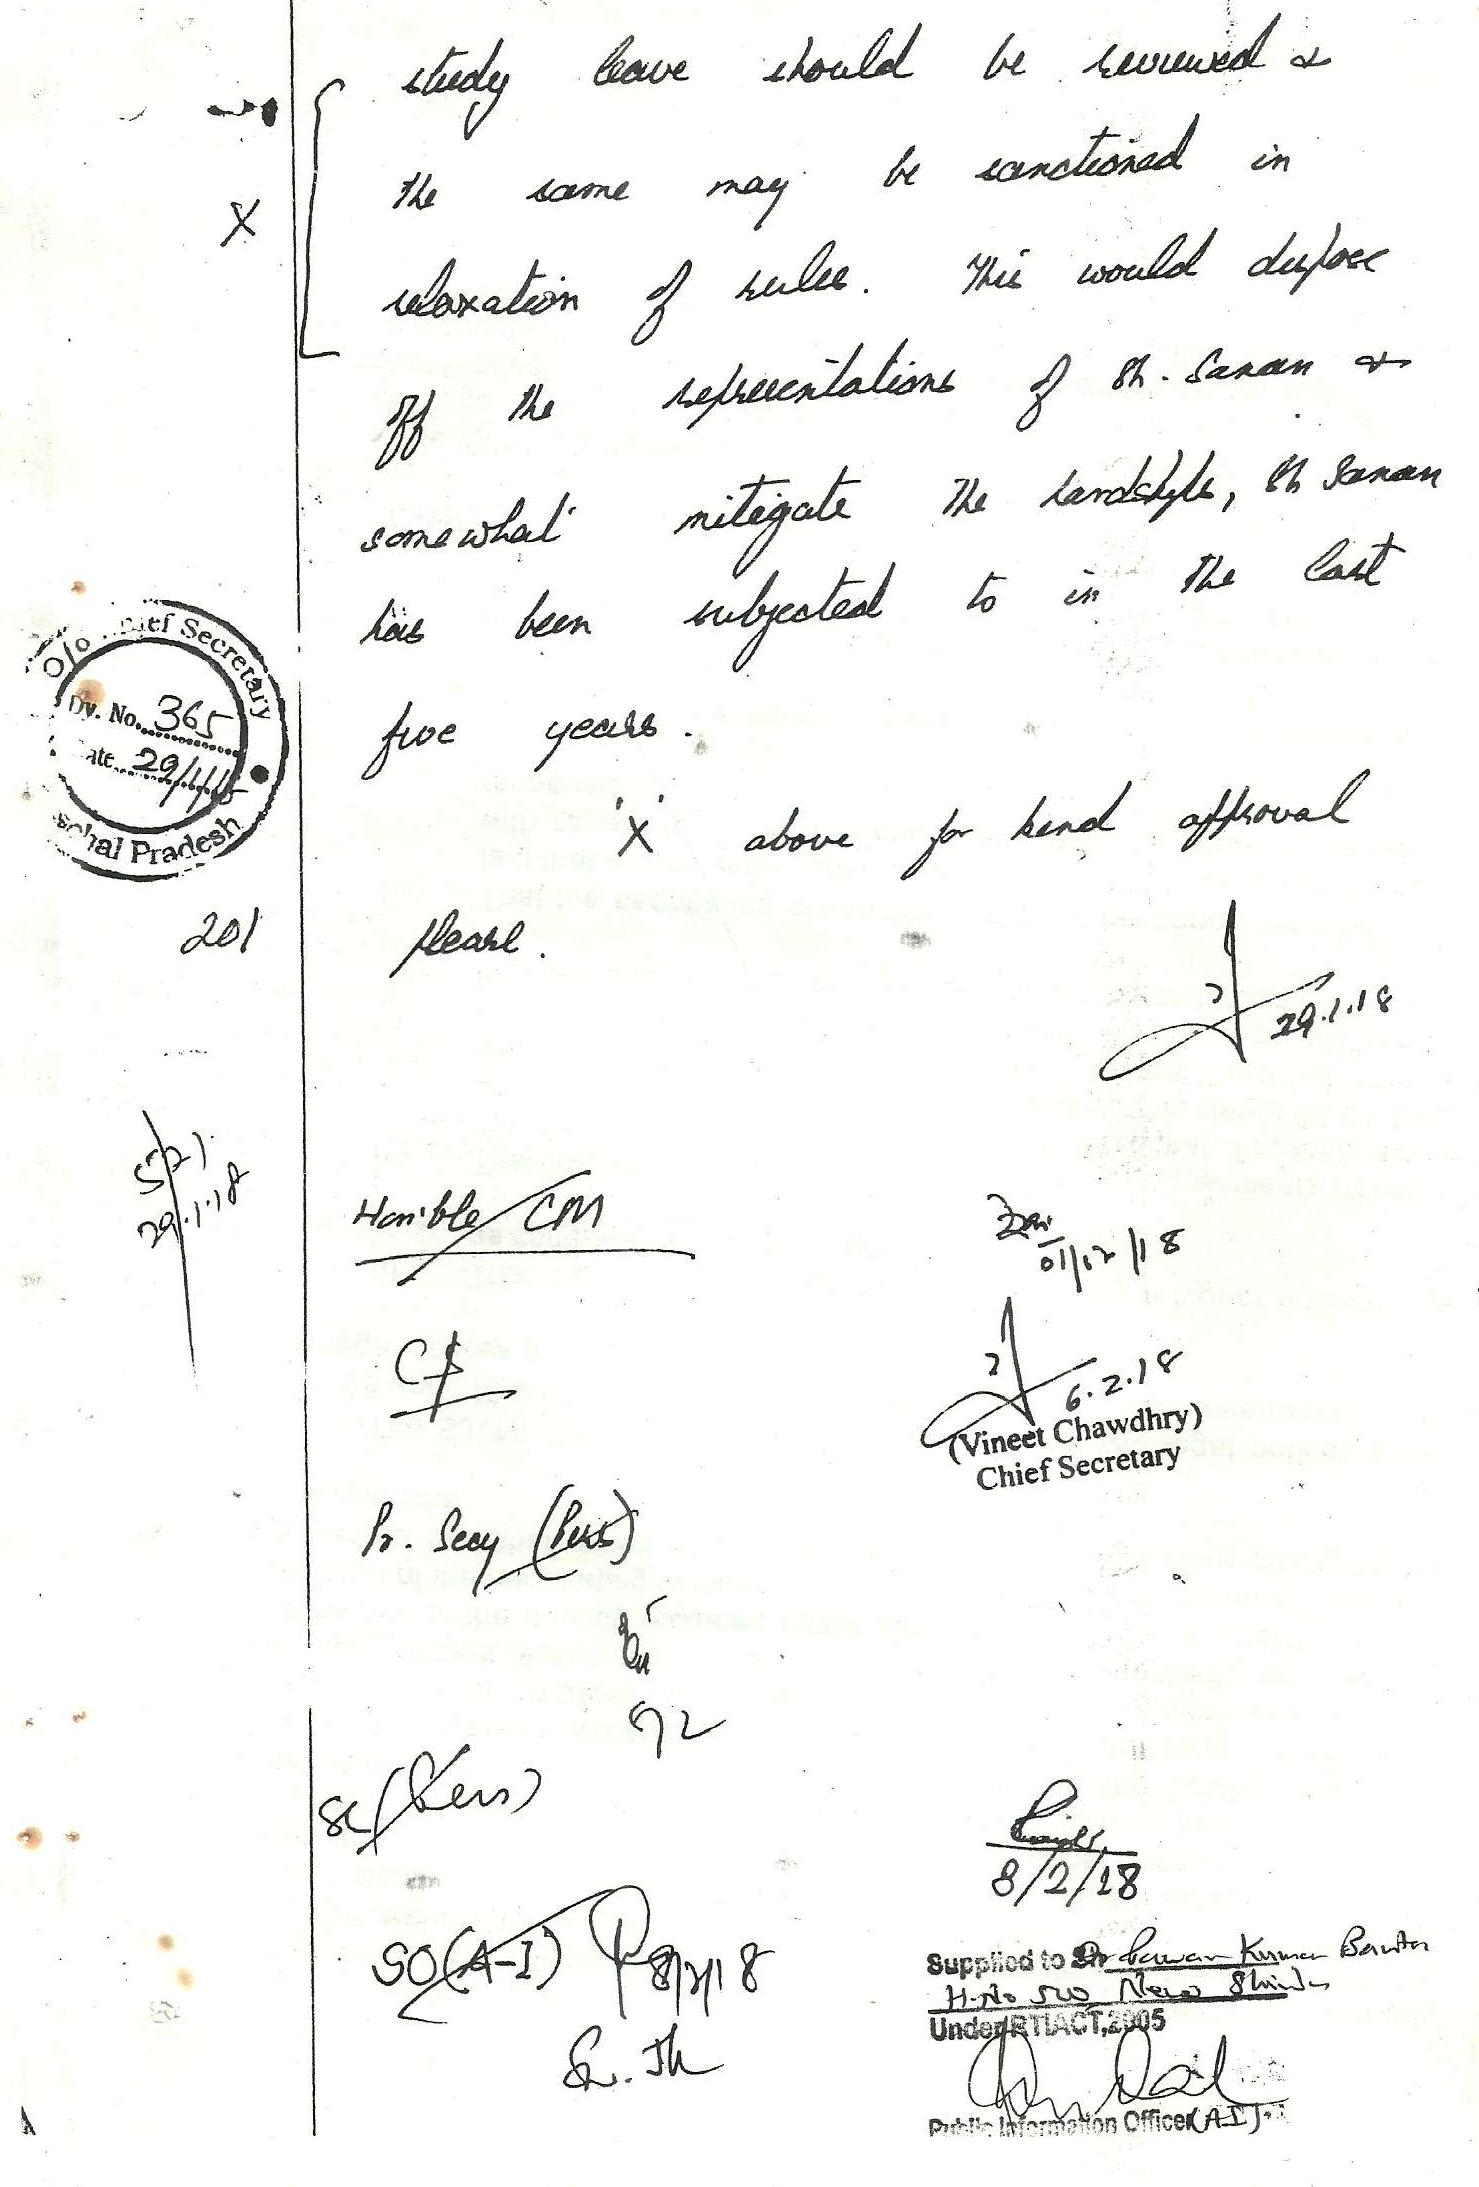 study leave should be reviewed &
the same may be sanctioned in
X
relaxation of rules. This would dispose
off the representations of Sh. Sanan &
somewhat mitigate the hardships, Sh Sanan
has been subjected to in the last
five years.
O/o Chief Secretary
Dy. No. 365
Date 29/1/18
Himachal Pradesh
'X' above for kind approval
201
please.
29.1.18
521
29.1.18
Hon'ble CM
01/02/18
CS
6.2.18
(Vineet Chawdhry)
Chief Secretary
Pr. Secy (Pers)
SO(A-I) 8/2/18
8/2/18
Supplied to Sh Pawan Kumar
H.No 500, New
Under RTIACT,2005
Public Information Officer(A-I)